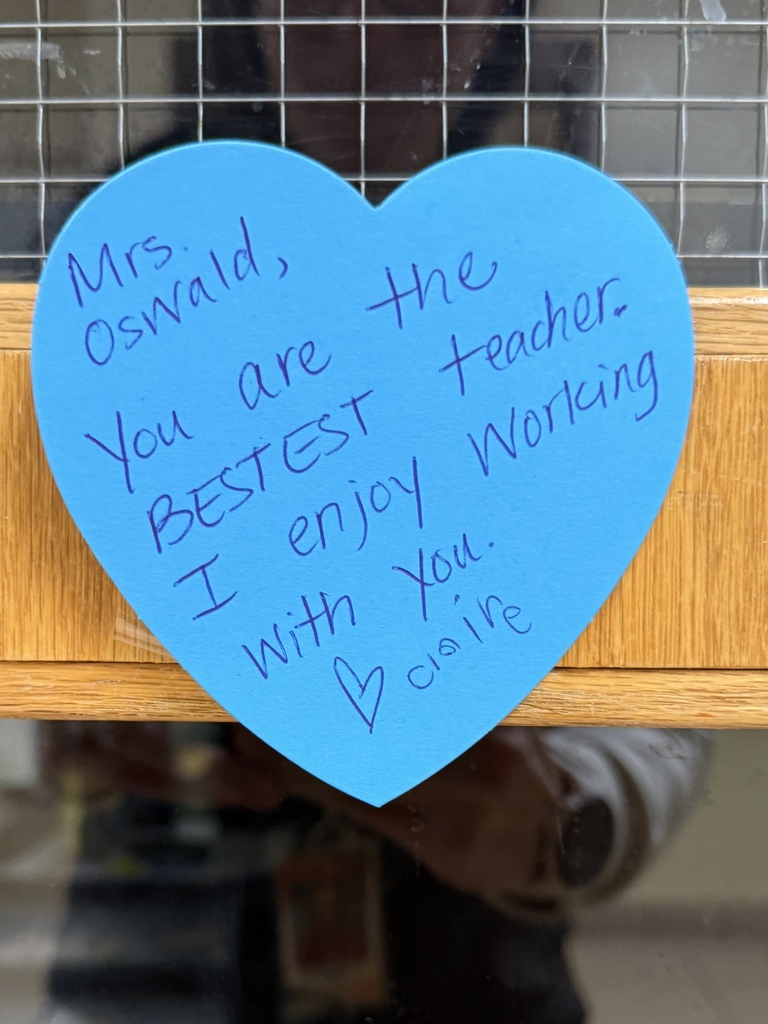 Mrs.
Oswald,
You are the
BESTEST teacher.
I enjoy working
with you.
♡ claire